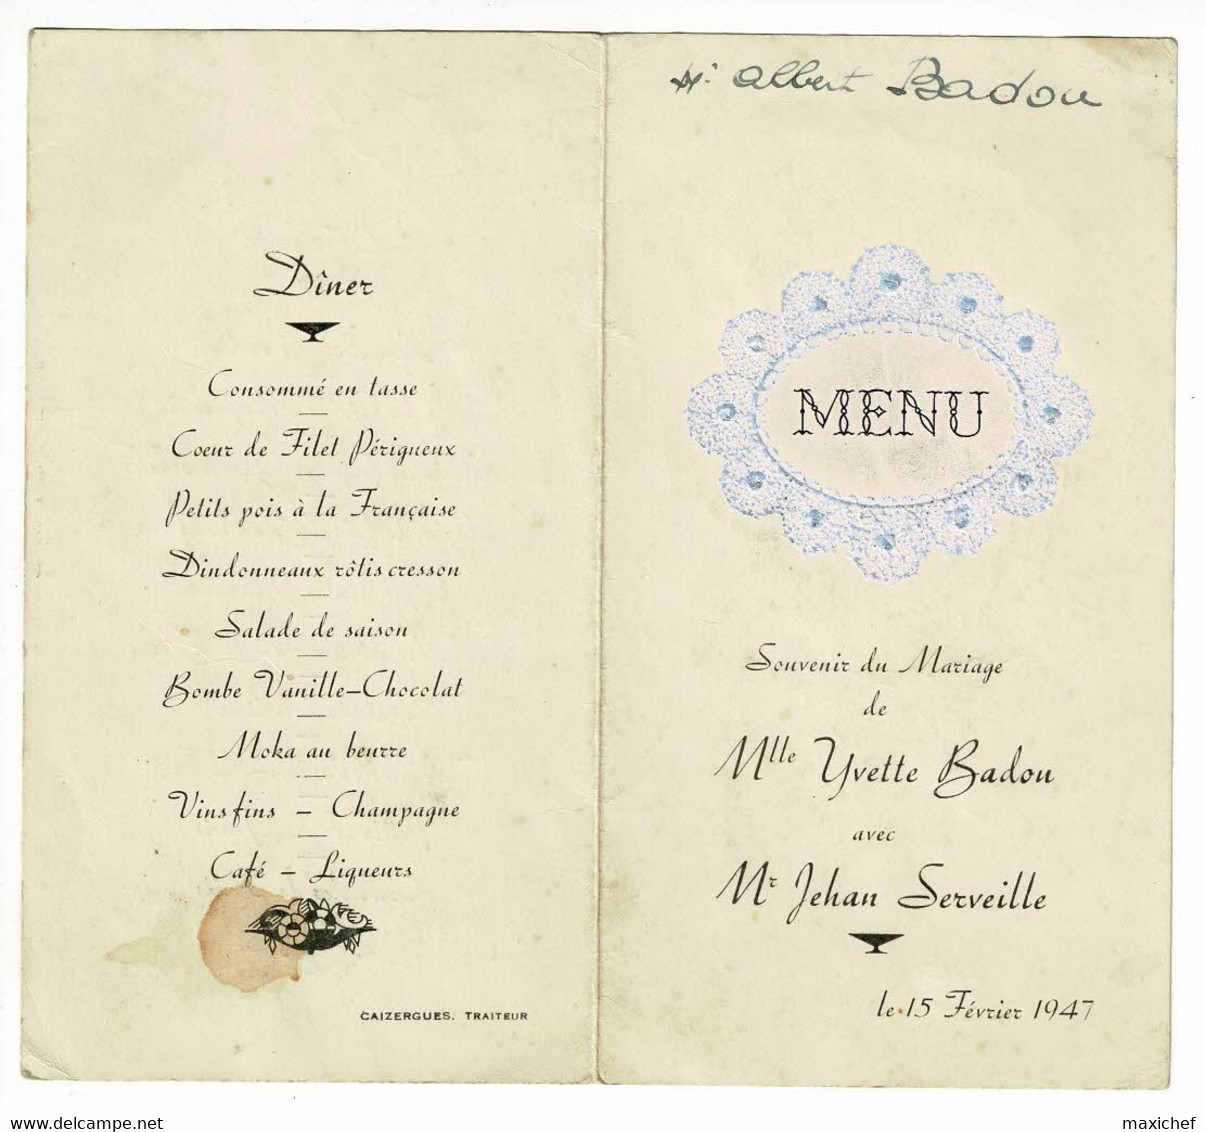 Dîner
Consommé en tasse
Coeur de Filet Périgueux
Petits pois à la Française
Dindonneaux rôtis cresson
Salade de saison
Bombe Vanille-Chocolat
Moka au beurre
Vins fins - Champagne
Café - Liqueurs
CAIZERGUES. TRAITEUR
Mr Albert Badou
MENU
Souvenir du Mariage
de
Mlle Yvette Badou
avec
Mr Jehan Serveille
le 15 Février 1947
delcampe.net
maxichef